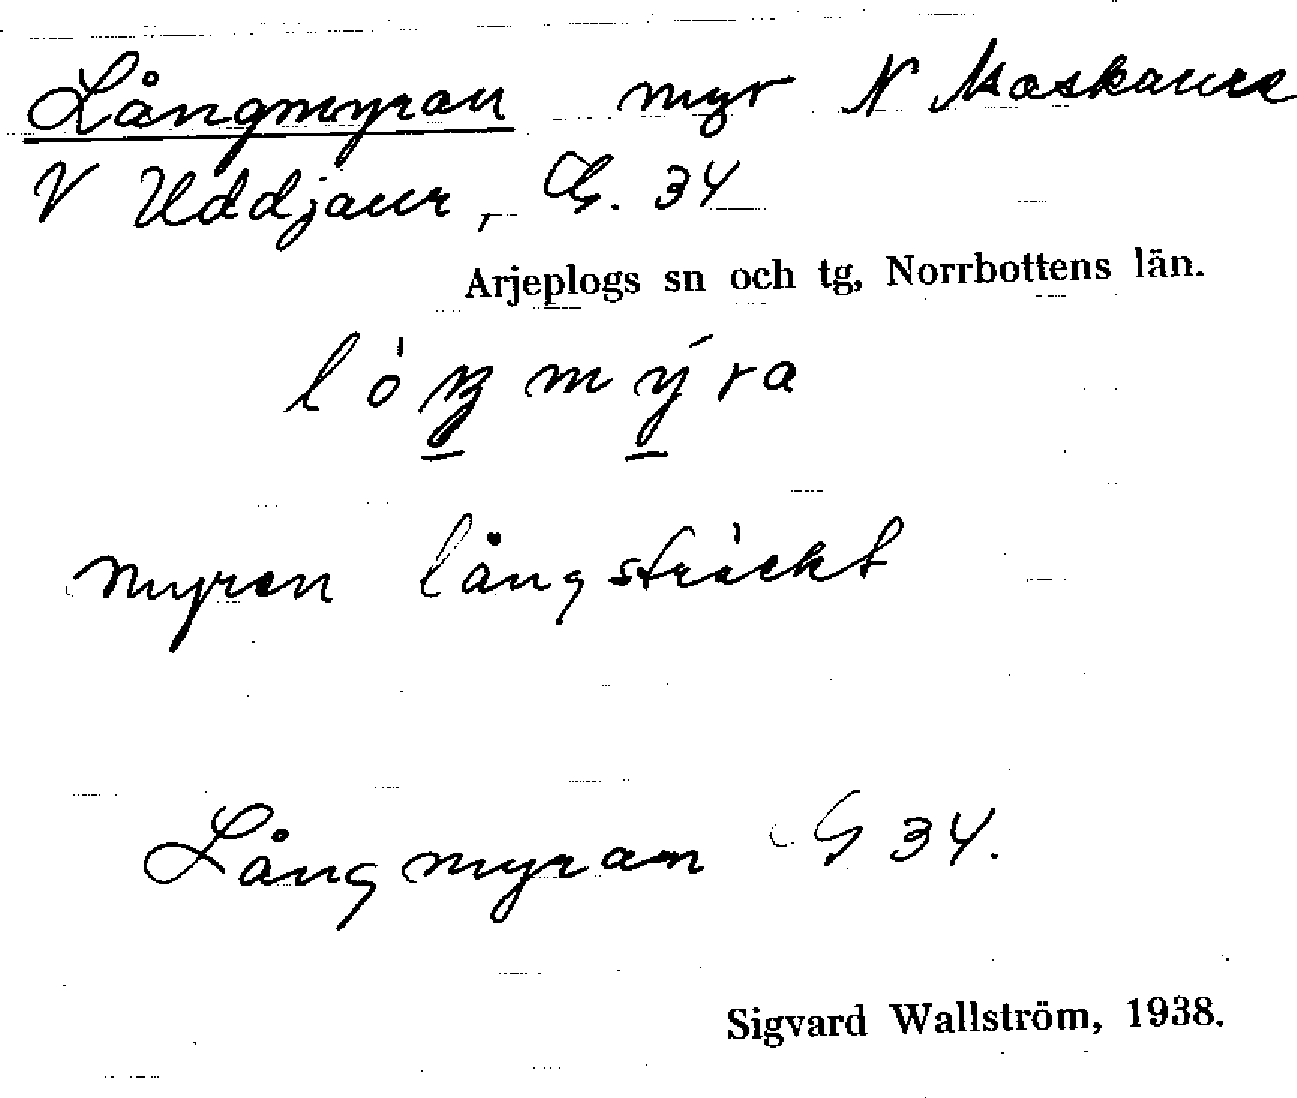 Långmyran myr N Maskaure
V Uddjaur, G. 34
Arjeplogs sn och tg, Norrbottens län.
myren långsträckt
Långmyran G 34.
Sigvard Wallström, 1938.